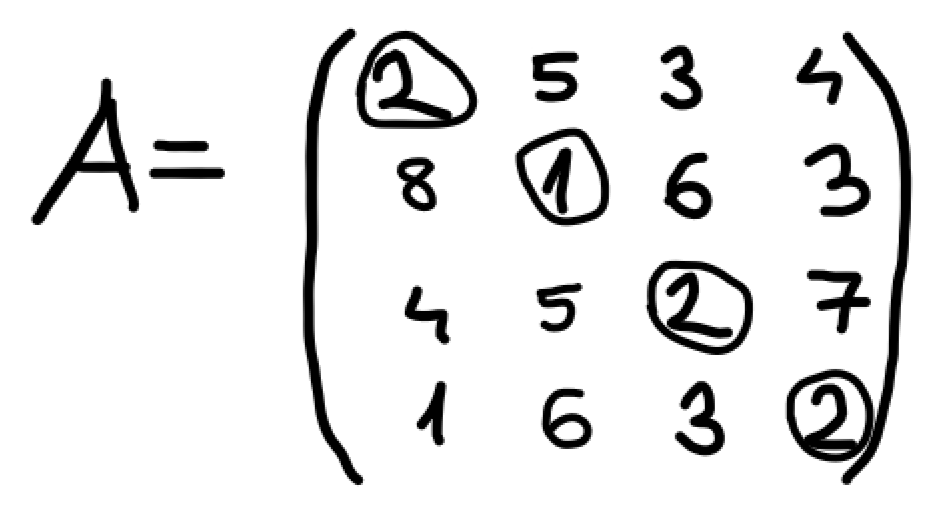 2 5 3 4
A= 8 1 6 3
4 5 2 7
1 6 3 2